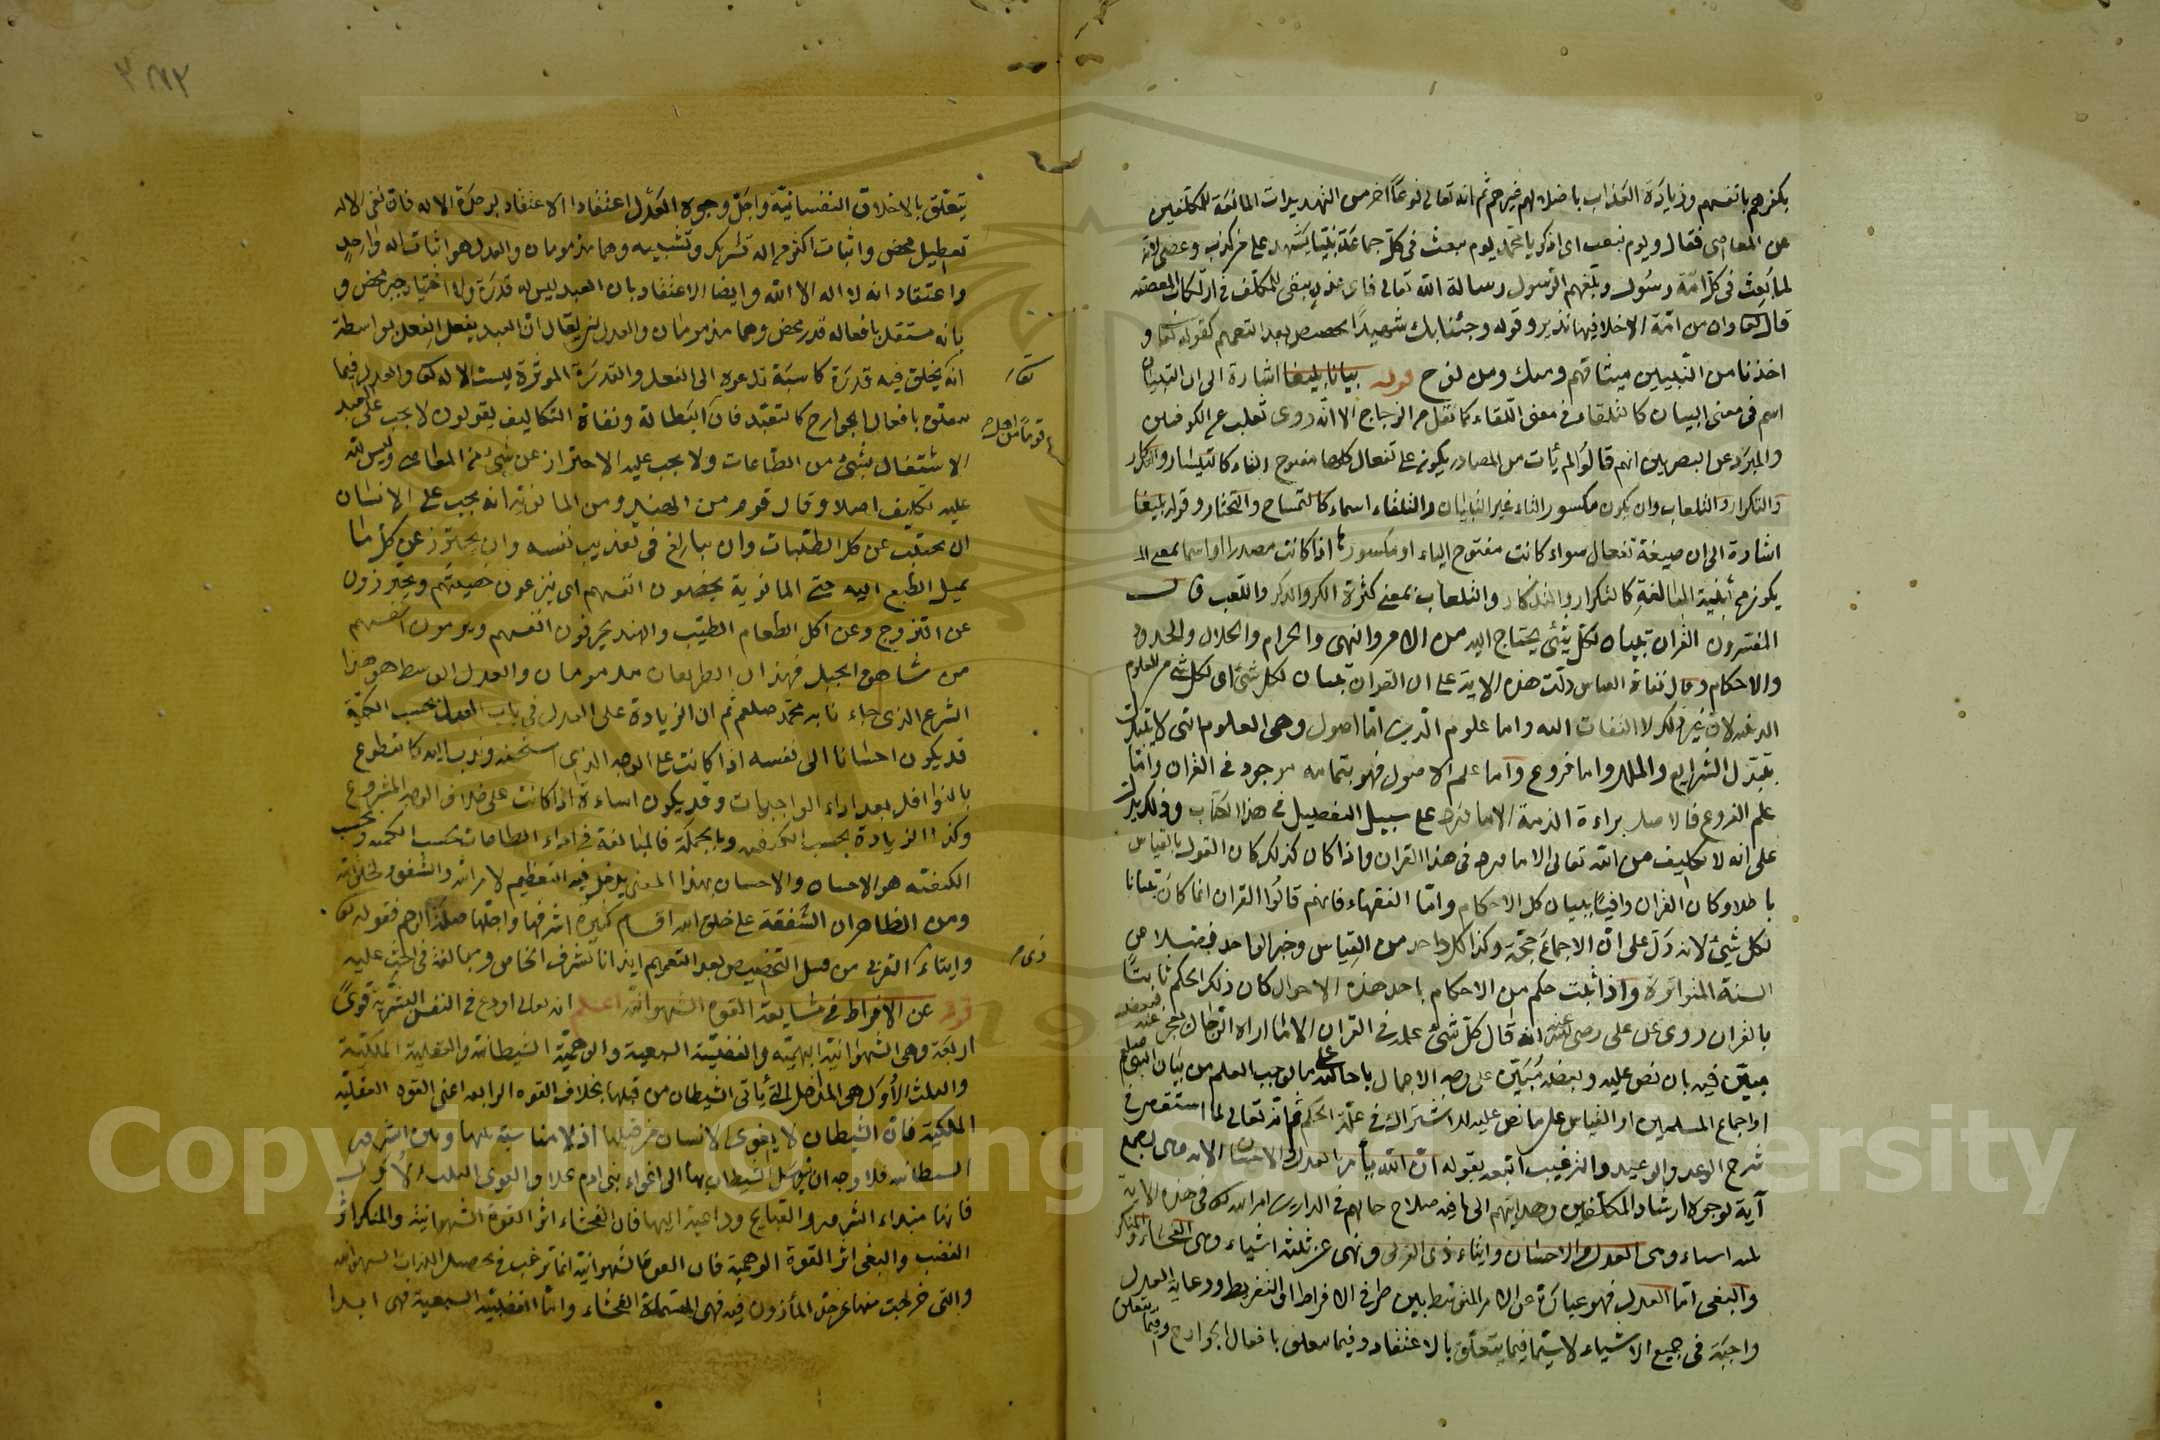 بكفرهم بانفسهم وزيادة العذاب باضلالهم غيرهم ثم انه تعالى ذكر نوعا آخر من التهديدات المانعة للمكلفين
عن المعاصى فقال ويوم نبعث اى اذكر يا محمد يوم نبعث فى كل جماعة نبيا يشهد على من كذبه وعصى
لما بُعث فى كل امة رسول وبلغهم الرسول رسالة الله تعالى فاى عذر يبقى للمكلف فى ارتكاب المعصية
قال تعالى وان من امة الا خلا فيها نذير وقوله وجئنا بك شهيدا تخصيص بعد التعميم كقوله تعالى و
اخذنا من النبيين ميثاقهم ومنك ومن نوح قوله بيانا بليغا اشارة الى ان التبيان
اسم فى معنى البيان كالتلقاء فى معنى اللقاء كما نقل من الزجاج الا انه روى ثعلب عن الكوفيين
والمبرد عن البصريين انهم قالوا لم يأت من المصادر يكون على تفعال كلها مفتوح التاء كالتيسار والتذكار
والتكرار والتلعاب وان يكون مكسور التاء غير التبيان والتلقاء اسماء كالتمساح والتجفاف وقوله بليغا
اشارة الى ان صيغة تفعال سواء كانت مفتوح التاء او مكسورها اذا كانت مصدرا او اسما بمعنى المصدر
يكون من أبنية المبالغة كالتكرار والتذكار والتلعاب بمعنى كثرة الكر والذكر واللعب قال
المفسرون القرآن تبيان لكل شئ يحتاج اليه من الامر والنهى والحرام والحلال والحدود
والاحكام وقال نفاة القياس دلت هذه الاية على ان القرآن تبيان لكل شئ اى لكل شئ من العلوم
الدينية لان غير ذلك لا التفات اليه واما علوم الدين اما اصول وهى العلوم التى لا تتبدل
بتبدل الشرايع والملل واما فروع واما علم الاصول فهو بتمامه موجود فى القرآن واما
علم الفروع فالاصل براءة الذمة الا ما ورد على سبيل التفصيل فى هذا الكتاب وذلك يدل
على انه لا تكليف من الله تعالى الا ما ورد فى هذا القرآن واذا كان كذلك كان القول بالقياس
باطلا وكان القرآن وافيا ببيان كل الاحكام واما الفقهاء فانهم قالوا القرآن انما كان تبيانا
لكل شئ لانه دل على ان الاجماع حجة وكذا كل واحد من القياس وخبر الواحد فضلا عن
السنة المتواترة واذا ثبت حكم من الاحكام باحد هذه الاحوال كان ذلك الحكم ثابتا
بالقرآن روى عن على رضى الله عنه انه قال كل شئ علمه فى القرآن الا ان اراء الرجال تعجز عنه فبعضه
مبين فيه بان نص عليه وبعضه مُبيّن على وجه الاجمال باحالته على ما يوجب العلم من بيان النبى صلعم
او اجماع المسلمين او القياس على ما نص عليه للاشتراك فى علة الحكم ثم انه تعالى لما استقصى فى
شرح الوعد والوعيد والترغيب اتبعه بقوله ان الله يأمر بالعدل والاحسان الاية وهى اجمع
آية لوجوه ارشاد المكلفين وهدايتهم الى ما فيه صلاح حالهم فى الدارين امر الله تعالى فى هذه الاية
بثلثة اشياء وهى العدل والاحسان وايتاء ذى القربى ونهى عن ثلثة اشياء وهى الفحشاء والمنكر
والبغى اما العدل فهو عبارة عن الامر المتوسط بين طرفى الافراط او التفريط ورعاية العدل
واجبة فى جميع الاشياء لا سيما فيما يتعلق بالاعتقاد وفيما يتعلق بافعال الجوارح وفيما يتعلق
٣٧٢
يتعلق بالاخلاق النفسانية واجل وجوه العدل اعتقادا الاعتقاد بوحدة الاله فان نفى الاله
تعطيل محض واثبات اكثر من اله تشريك وتشبيه وهما مذمومان والعدل هو اثبات اله واحد
واعتقاد انه لا اله الا الله وايضا الاعتقاد بان العبد ليس له قدرة ولا اختيار جبر محض و
بانه مستقل بافعاله قدر محض وهما مذمومان والعدل ان يقال ان العبد يفعل الفعل بواسطة
انه يخلق فيه قدرة كاسبة تدعوه الى الفعل والقدرة المؤثرة ليست الا له تعالى والعدل فيما
يتعلق بافعال الجوارح كالتعبد فان البطالة ونفاة التكاليف يقولون لا يجب على عبد
الاشتغال بشئ من الطاعات ولا يجب عليه الاحتراز عن شئ من المعاصى وليس لله
عليه تكليف اصلا وقال قوم من الهند ومن المانوية انه يجب على الانسان
ان يجتنب عن كل الطيبات وان يبالغ فى تعذيب نفسه وان يحترز عن كل ما
يميل الطبع اليه حتى المانوية يخصون انفسهم اى ينزعون خصيتهم ويحترزون
عن التزوج وعن اكل الطعام الطيب والهند يحرقون انفسهم ويرمون انفسهم
من شاهق الجبل فهذان الطريقان مذمومان والعدل الوسط هو هذا
الشرع الذى جاءنا به محمد صلعم ثم ان الزيادة على العدل فى باب العمل بحسب الكمية
قد يكون احسانا الى نفسه اذا كانت على الوجه الذى استحقه وندب اليه كالتطوع
بالنوافل بعد اداء الواجبات وقد يكون اساءة اذا كانت على خلاف الوجه المشروع
وكذا الزيادة بحسب الكيفية وبالجملة فالمبالغة فى اداء الطاعات بحسب الكمية وبحسب
الكيفية هو الاحسان والاحسان بهذا المعنى يدخل فيه التعظيم لامر الله والشفقة لخلق الله
ومن الظاهر ان الشفقة على خلق الله اقسام كثيرة اشرفها واجلها صلة الرحم فقوله تعالى
وايتاء القربى من قبيل التخصيص بعد التعميم ايذانا بشرف الخاص ومبالغة فى الحث عليه
قوله عن الافراط فى مشايعة القوة الشهوانية اعلم انه تعالى اودع فى النفس البشرية قوى
اربعة وهى الشهوانية البهيمية والغضبية السبعية والوهمية الشيطانية والعقلية الملكية
والثلث الأُوَل هى المداخل التى يأتى الشيطان من قبلها بخلاف القوة الرابعة اعنى القوة العقلية
الملكية فان الشيطان لا يغوى الانسان من قبلها اذ لا مناسبة بينها وبين الشرور
الشيطانية فلا وجه ان يتوسل الشيطان بها الى اغواء بنى ادم بخلاف القوى الثلث الأُوَل
فانها مبداء الشرور والقبايح وداعية اليها فان الفحشاء اثر القوة الشهوانية والمنكر اثر
الغضب والبغى اثر القوة الوهمية فان القوة الشهوانية انما ترغب فى تحصيل اللذات الشهوانية
والتى خرجت منها عن حد المأذون فيه فهى المسماة الفحشاء واما الغضبية السبعية فهى ابدا
تعالى
قوما من اهل
ذى
Copyright © King Saud University